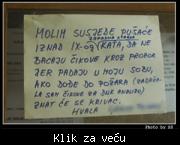 MOLIM SUSJEDE PUŠAČE
ZAPADNA STRANA
IZNAD IX-og KATA, DA NE
BACAJU ČIKOVE KROZ PROZOR
JER PADAJU U MOJU SOBU,
AKO DOĐE DO POŽARA
ČIKOVE ZA
ZNAT ĆE SE KRIVAC.
HVALA
Klik za veću